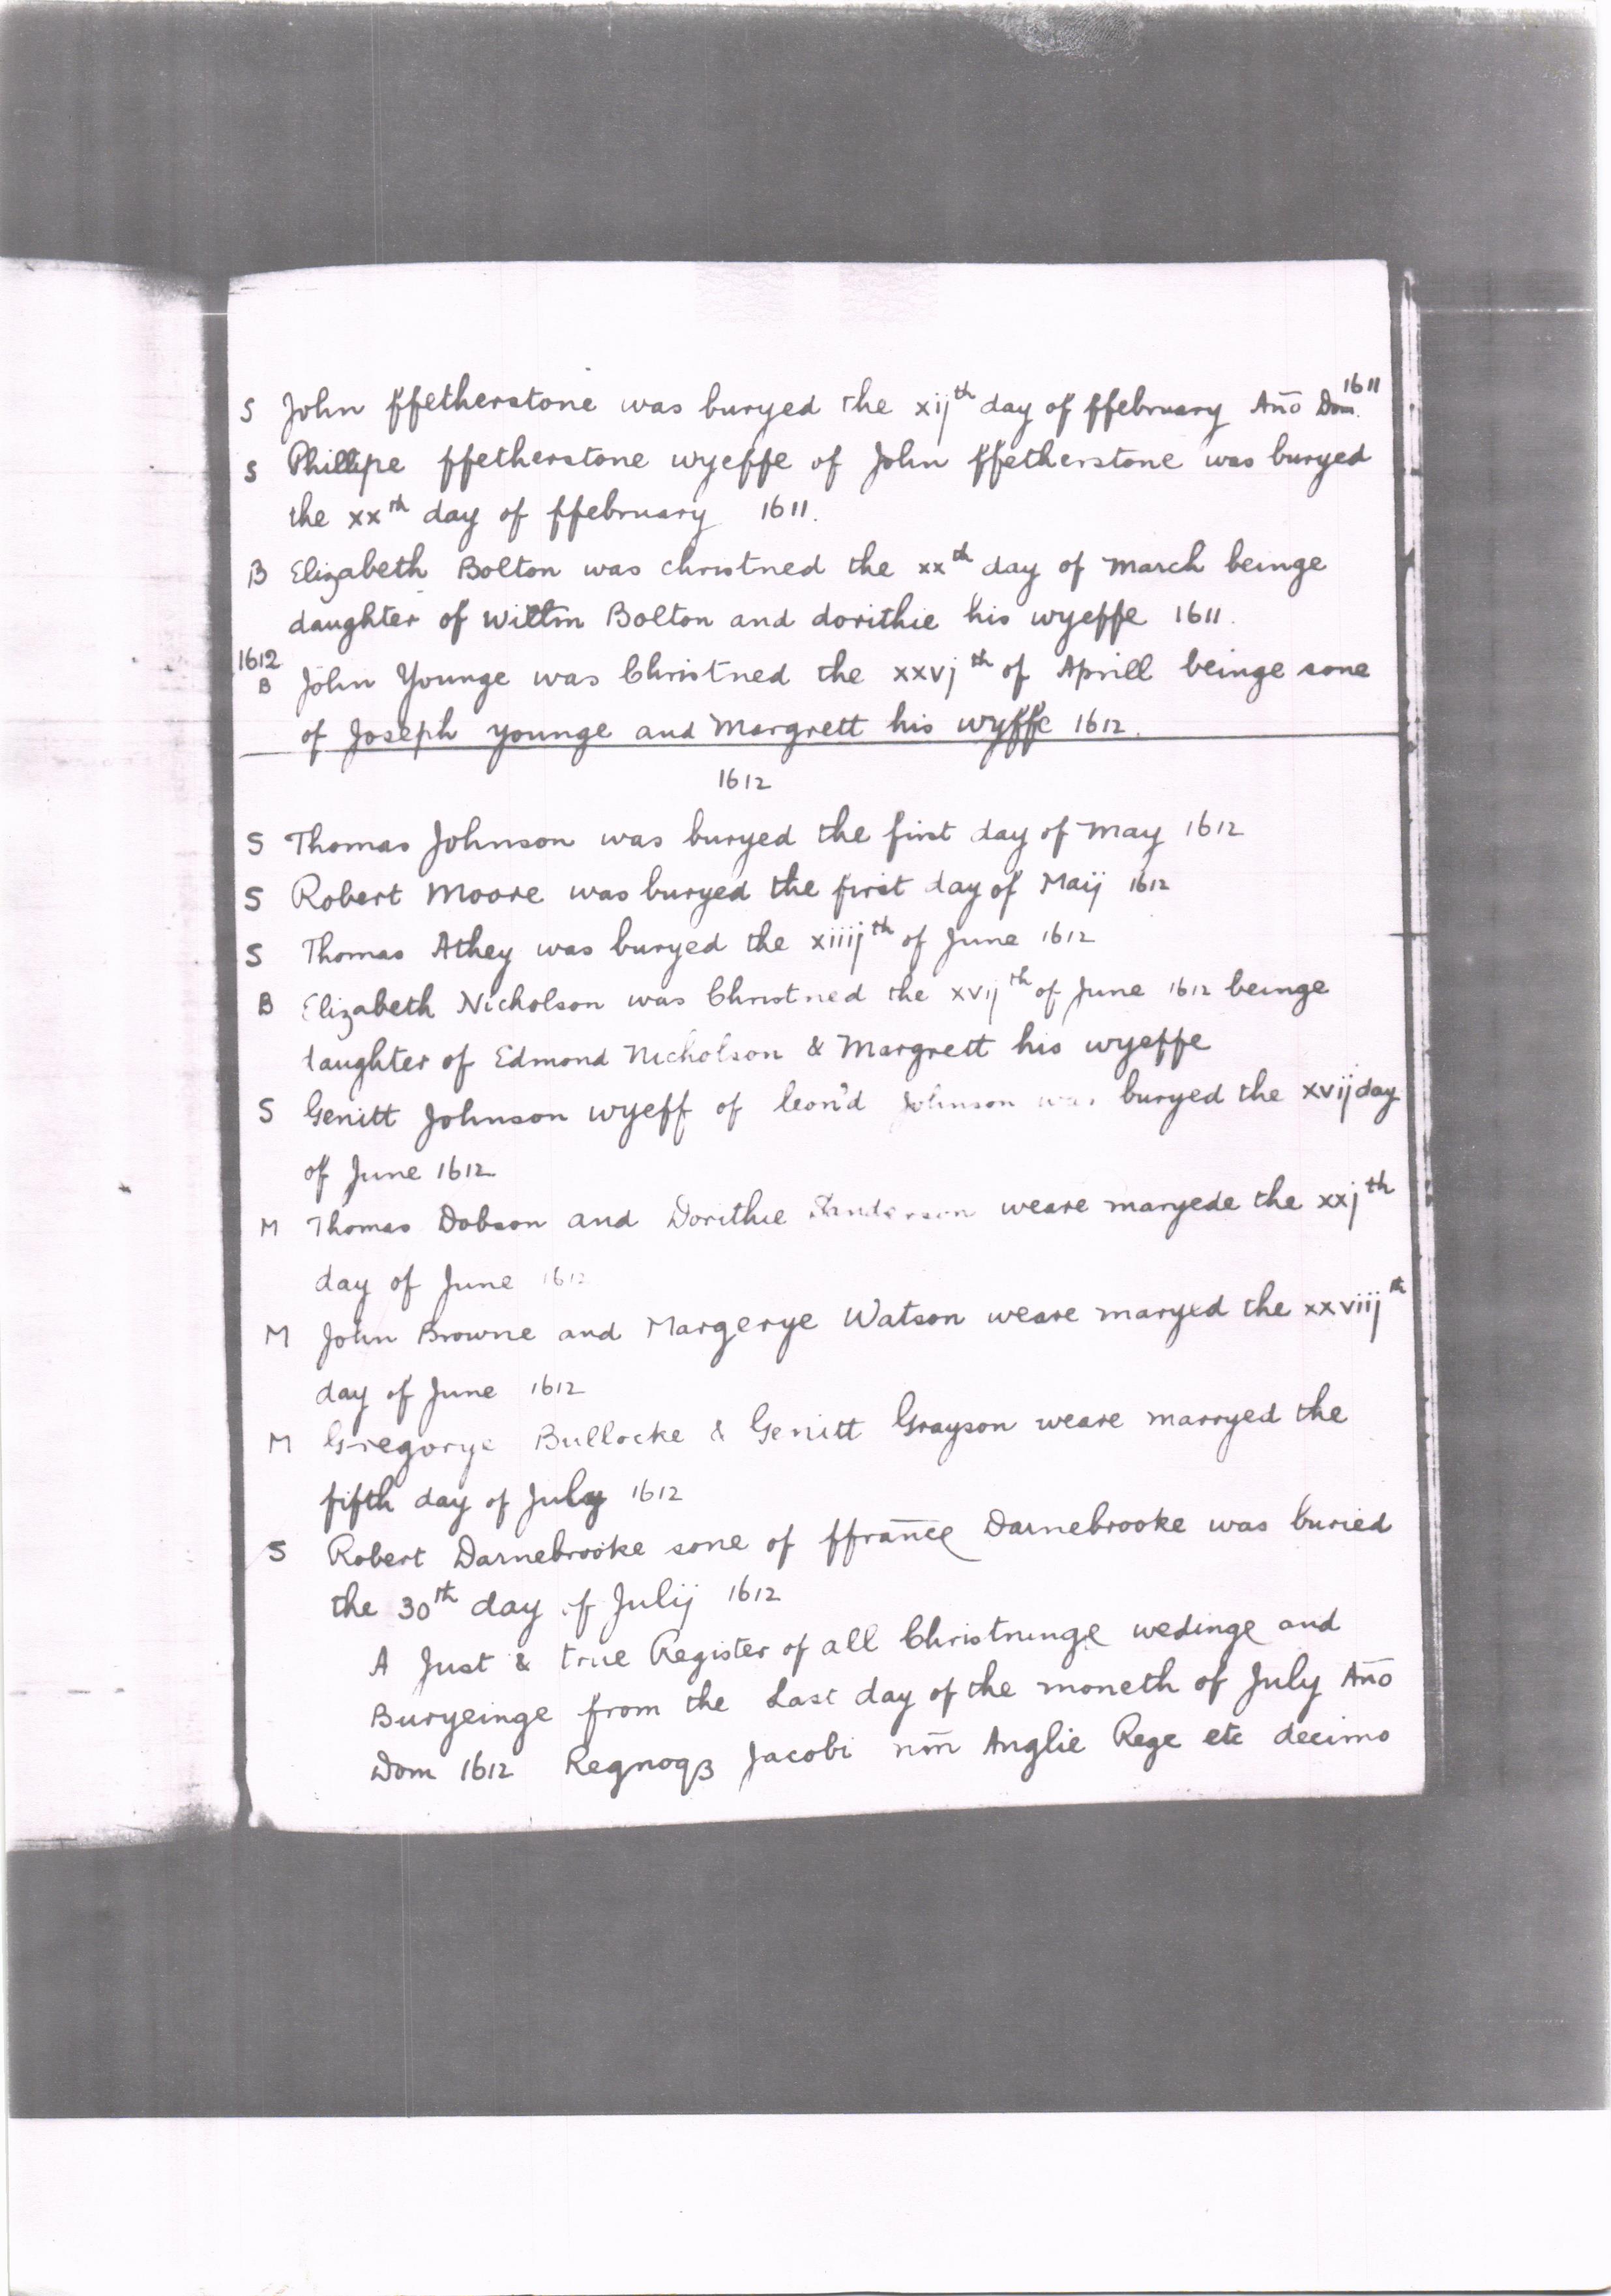 S John ffetherstone was buryed the xijth day of ffebruary Año Dom. 1611
S Phillipe ffetherstone wyeffe of John ffetherstone was buryed
the xxth day of ffebruary 1611.
B Elizabeth Bolton was christned the xxth day of march beinge
daughter of Willm Bolton and dorithie his wyeffe 1611.
1612
B John Younge was Christned the xxvjth of Aprill beinge sone
of Joseph younge and Margrett his wyffe 1612.
1612
S Thomas Johnson was buryed the first day of May 1612
S Robert Moore was buryed the first day of Maij 1612
S Thomas Athey was buryed the xiiijth of June 1612
B Elizabeth Nicholson was Christned the xvijth of June 1612 beinge
daughter of Edmond Nicholson & Margrett his wyeffe
S Genitt Johnson wyeff of leon'd Johnson was buryed the xvij day
of June 1612
M Thomas Dobson and Dorithie Sanderson weare maryede the xxjth
day of June 1612
M John Browne and Margerye Watson weare maryed the xxviijth
day of June 1612
M Gregorye Bullocke & Genitt Grayson weare marryed the
fifth day of July 1612
S Robert Darnebrooke sone of ffrañce Darnebrooke was buried
the 30th day of Julij 1612
A Just & true Register of all Christninge wedinge and
Buryeinge from the Last day of the moneth of July Año
Dom 1612 Regnoqꝫ Jacobi nr̄m Anglie Rege etc decimo